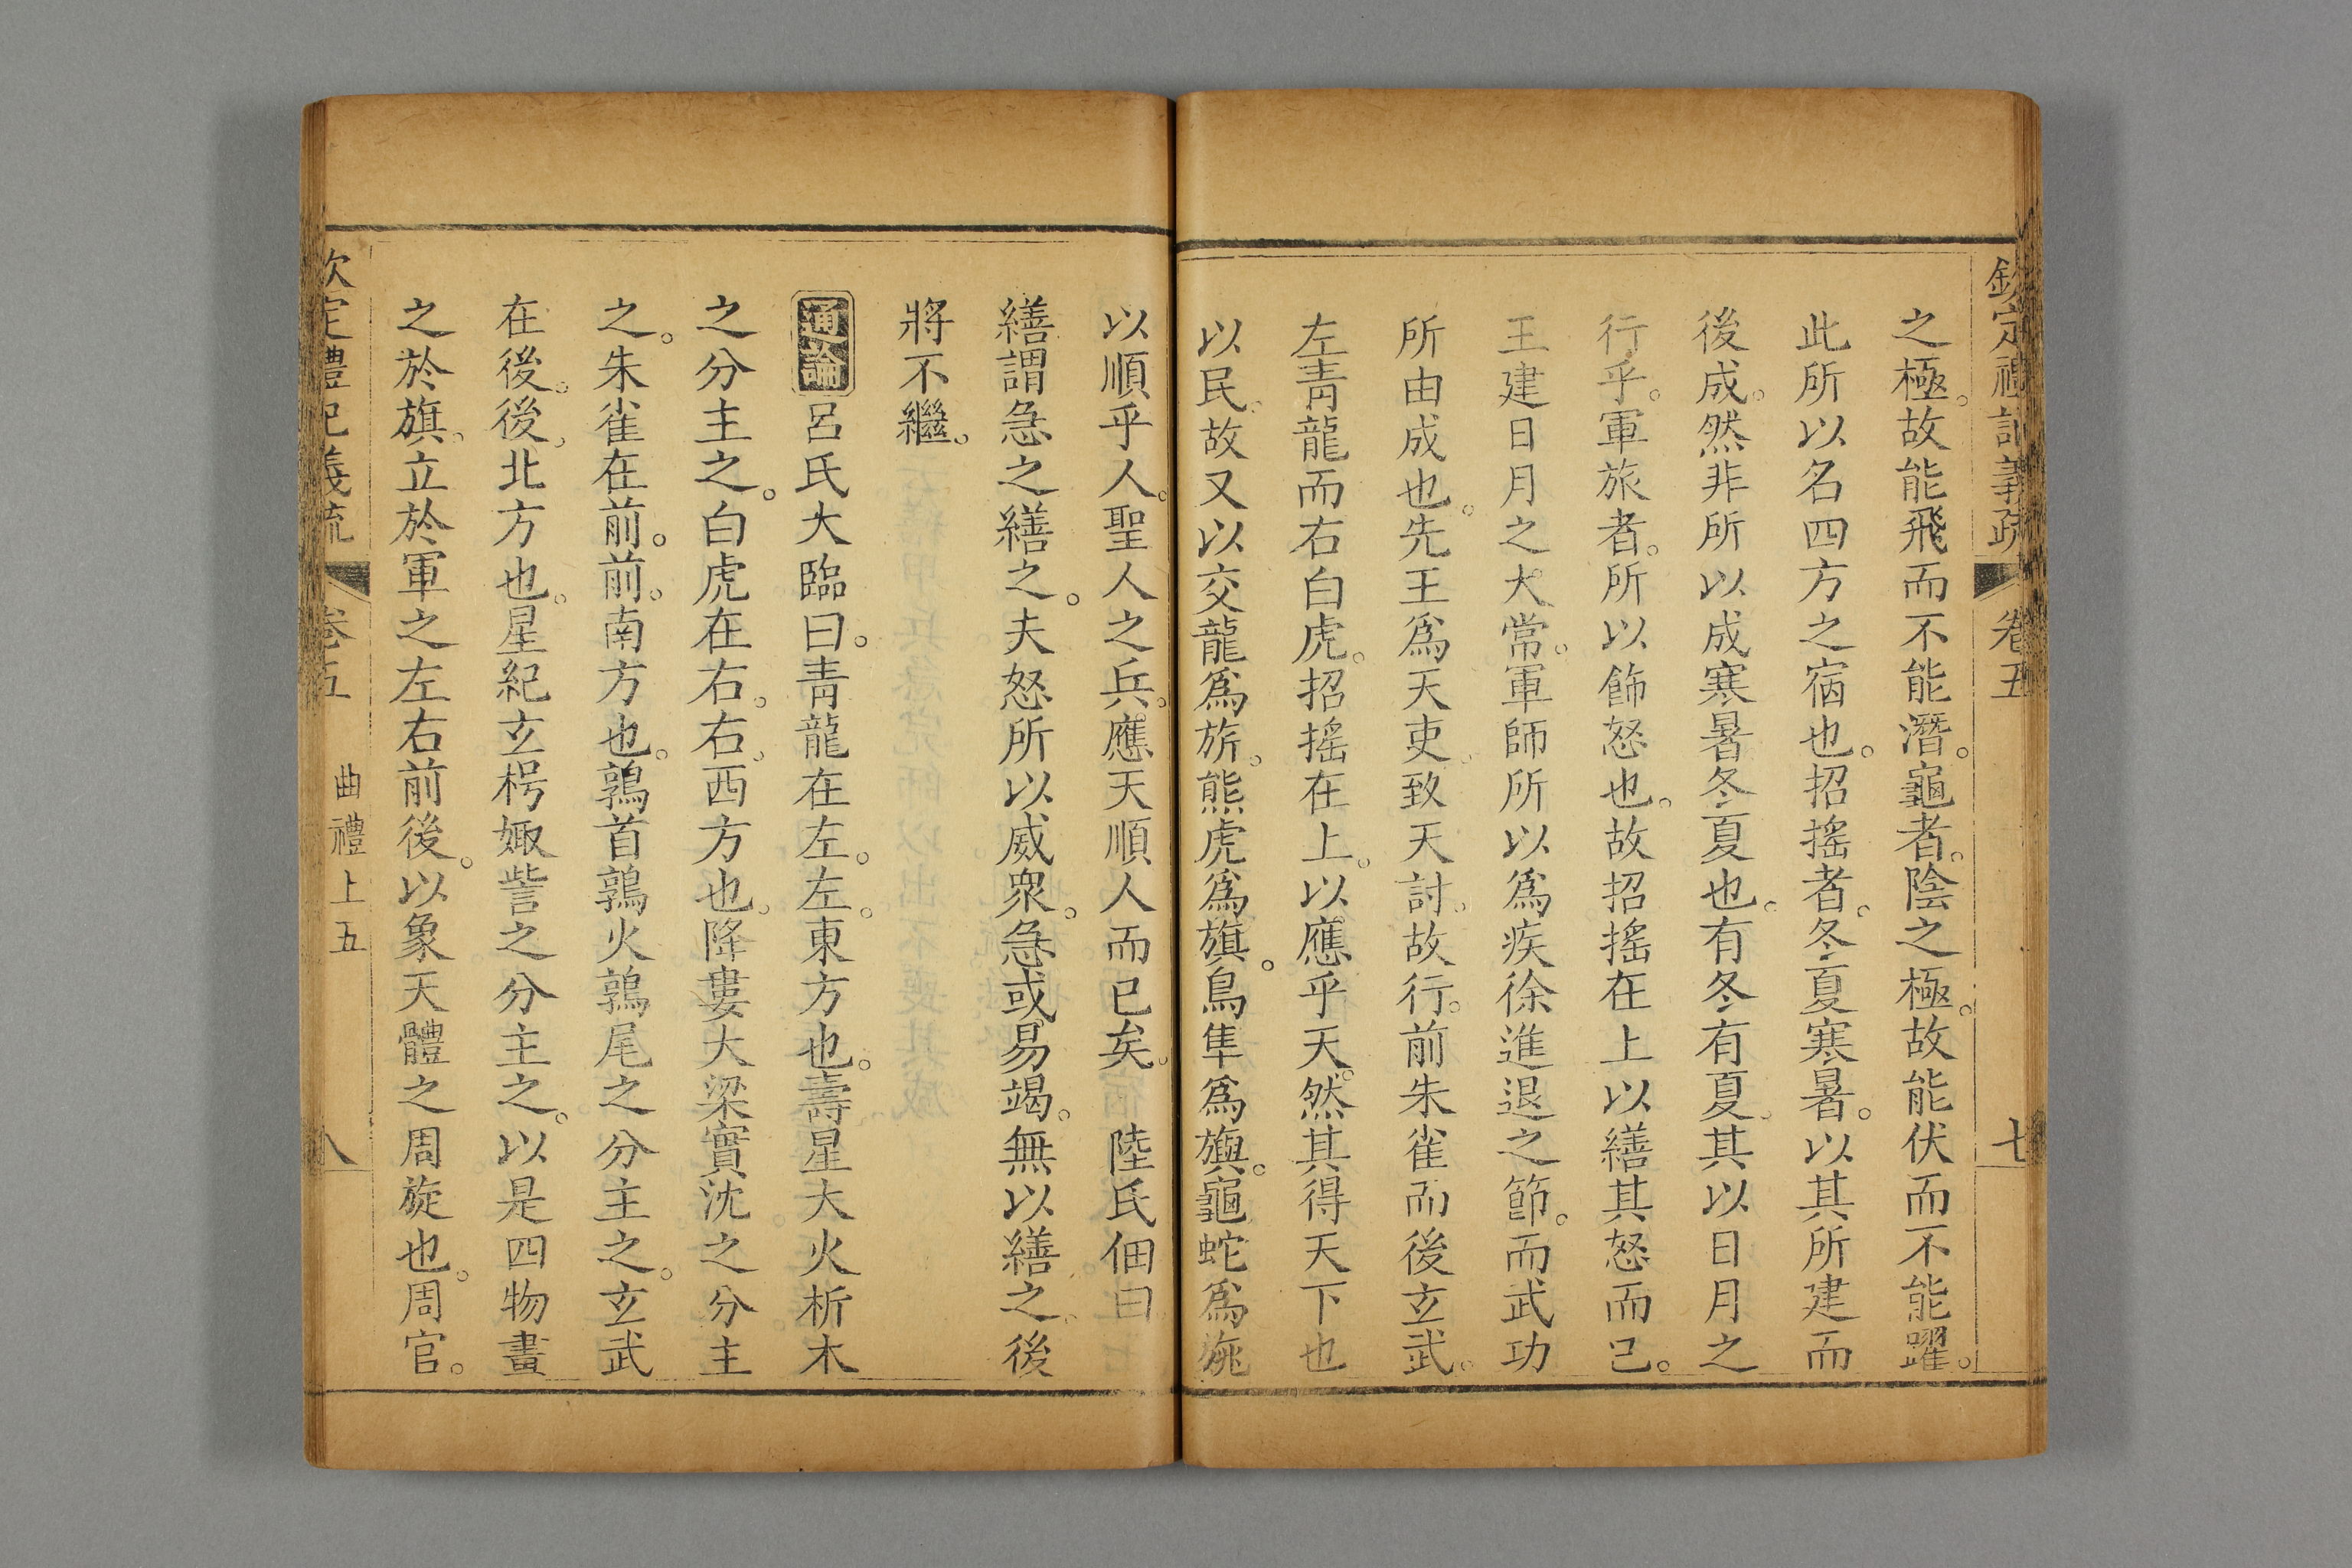 欽定禮記義疏 卷五 七
之極。故能飛而不能潛。龜者。陰之極。故能伏而不能躍。
此所以名四方之宿也。招搖者。冬夏寒暑。以其所建而
後成。然非所以成寒暑冬夏也。有冬有夏。其以日月之
行乎。軍旅者。所以飾怒也。故招搖在上以繕其怒而已。
王建日月之大常。軍師所以爲疾徐進退之節。而武功
所由成也。先王爲天吏。致天討。故行。前朱雀而後玄武。
左青龍而右白虎。招搖在上。以應乎天。然其得天下也
以民。故又以交龍爲旂。熊虎爲旗。鳥隼爲旟。龜蛇爲旐
以順乎人。聖人之兵。應天順人而已矣。 陸氏佃曰
繕謂急之繕之。夫怒所以威衆。急或易竭。無以繕之。後
將不繼。
通論 呂氏大臨曰。青龍在左。左。東方也。壽星大火析木
之分主之。白虎在右。右。西方也。降婁大梁實沈之分主
之。朱雀在前。前。南方也。鶉首鶉火鶉尾之分主之。玄武
在後。後。北方也。星紀玄枵娵訾之分主之。以是四物畫
之於旗。立於軍之左右前後。以象天體之周旋也。周官。
欽定禮記義疏 卷五 曲禮上五 八